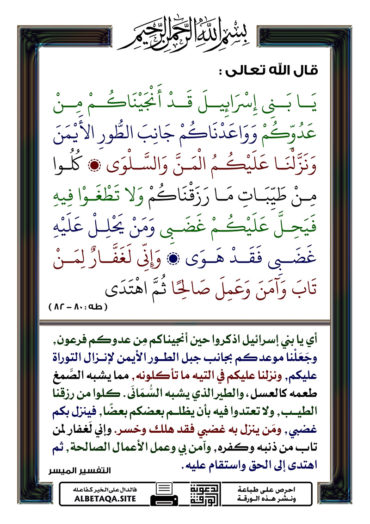 بسم الله الرحمن الرحيم
قال الله تعالى :
يَـا بَـنِي إِسْرَابِيـلَ قَـدْ أَنجَيْنَاكُـمْ مِـنْ
عَدُوِّكُمْ وَوَاعَدْنَاكُمْ جَانِبَ الطُّورِ الأَيْمَنَ
وَنَزَّلْنَـا عَلَيْكُـمُ الْمَـنَّ وَالسَّـلْوَى ۞ كُلُـوا
مِـنْ طَيِّبَـاتِ مَـا رَزَقْنَاكُمْ وَلا تَطْغَـوْا فِيهِ
فَيَحِـلَّ عَلَيْكُـمْ غَضَـبِي وَمَنْ يَحْلِـلْ عَلَيْهِ
غَضَـبِي فَقَـدْ هَـوَى ۞ وَإِنِّي لَغَفَّـارٌ لِمَـنْ
تَابَ وَآمَنَ وَعَمِلَ صَالِحًا ثُمَّ اهْتَدَى
( طه : ٨٠ - ٨٢ )
أي يا بني إسرائيل اذكروا حين أنجيناكم مِن عدوكم فرعون ,
وجَعَلْنا موعدكم بجانب جبل الطـور الأيمن لإنـزال التوراة
عليكم , ونزلنا عليكم في التيه ما تأكلونه , مما يشبه الصَّمغ
طعمه كالعسل , والطير الذي يشبه السُّمَانَى . كلوا من رزقنا
الطيـب , ولا تعتدوا فيه بأن يظلـم بعضكم بعضًا , فينزل بكم
غضبي , ومَن ينزل به غضبي فقد هلك وخسر . وإني لَغفار لمن
تاب من ذنبه وكفره , وآمن بي وعمل الأعمال الصالحة , ثم
اهتدى إلى الحق واستقام عليه .
التفسير الميسر
احرص على طباعة
ونشر هذه الورقة
الدعوية
الورقة
فالدال على الخير كفاعله
ALBETAQA.SITE